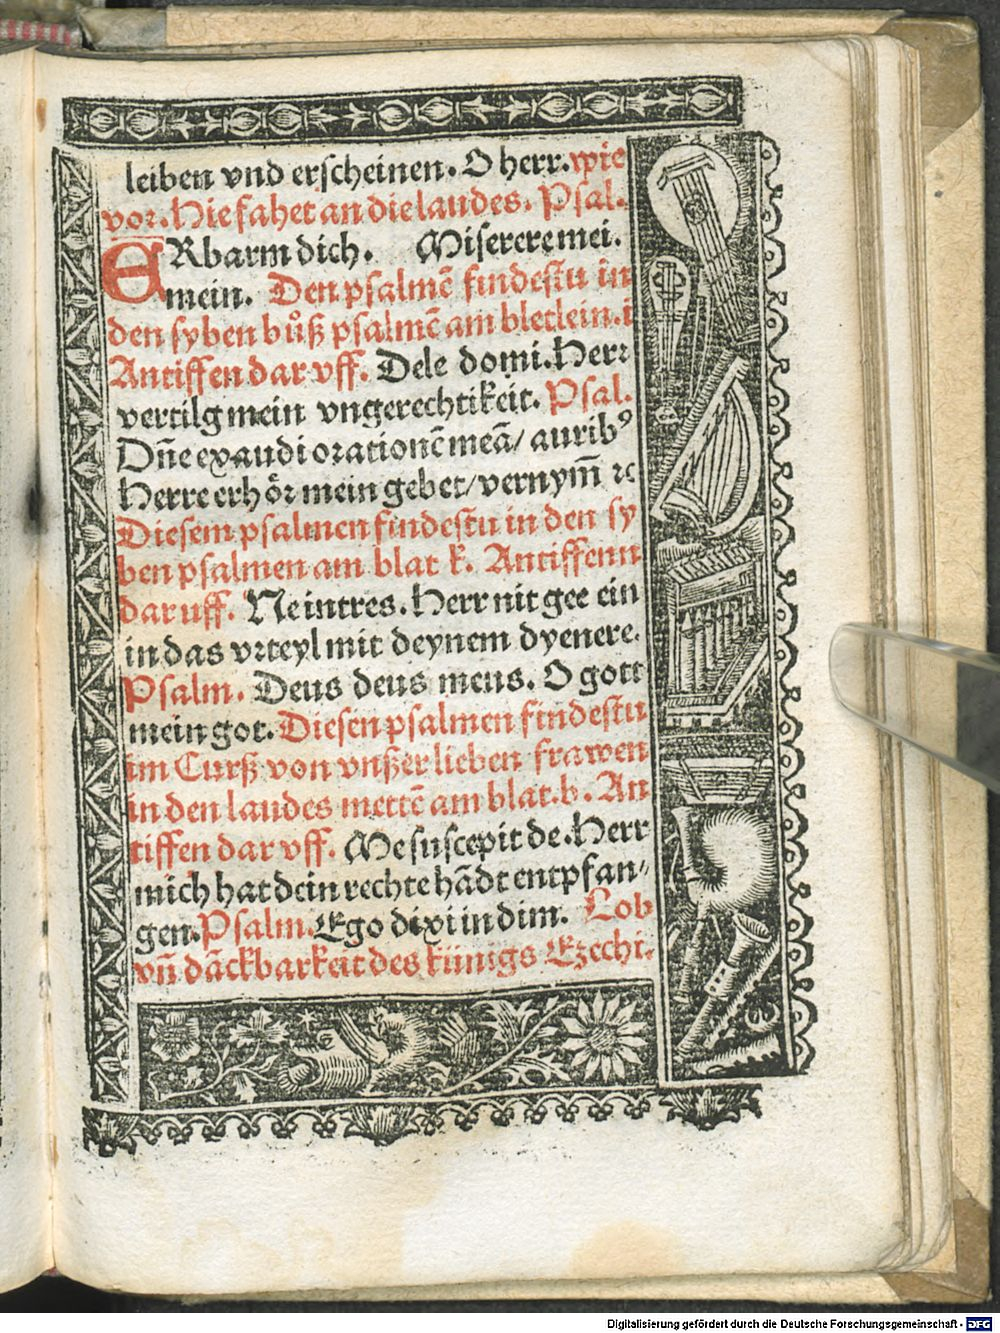 leiben vnd erscheinen. O herr. wie
vor. Hie fahet an die laudes. Psal.
ERbarm dich. Miserere mei.
mein. Den psalmē findestu in
den syben bůß psalmē am bletlein. i
Antiffen dar vff. Dele domi. Herr
vertilg mein vngerechtikeit. Psal.
Dn̄e exaudi orationē meā/ aurib⁹
Herre erhör mein gebet/ vernym̄ ꝛc
Diesem psalmen findestu in den sy
ben psalmen am blat k. Antiffenn
dar uff. Ne intres. Herr nit gee ein
in das vrteyl mit deynem dyenere.
Psalm. Deus deus meus. O gott
mein got. Diesen psalmen findestu
im Curß von vnßer lieben frawen
in den laudes mettē am blat. b. An
tiffen dar vff. Me suscepit de. Herr
mich hat dein rechte hādt entpfan⸗
gen. Psalm. Ego dixi in dim. Lob
vn̄ dāckbarkeit des künigs Ezechi.
Digitalisierung gefördert durch die Deutsche Forschungsgemeinschaft - DFG